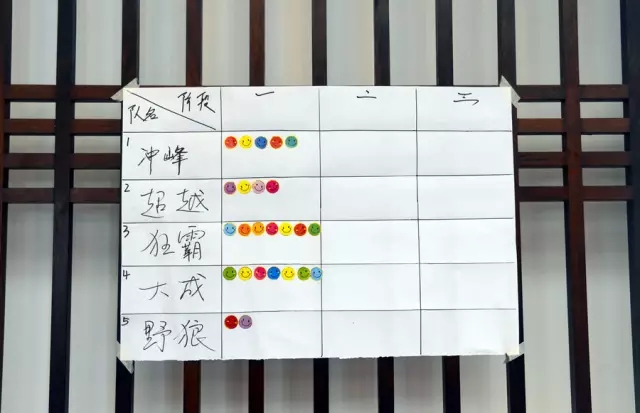 阶段 一 二 三
队名
1 冲峰
2 超越
3 狂霸
4 大成
5 野狼